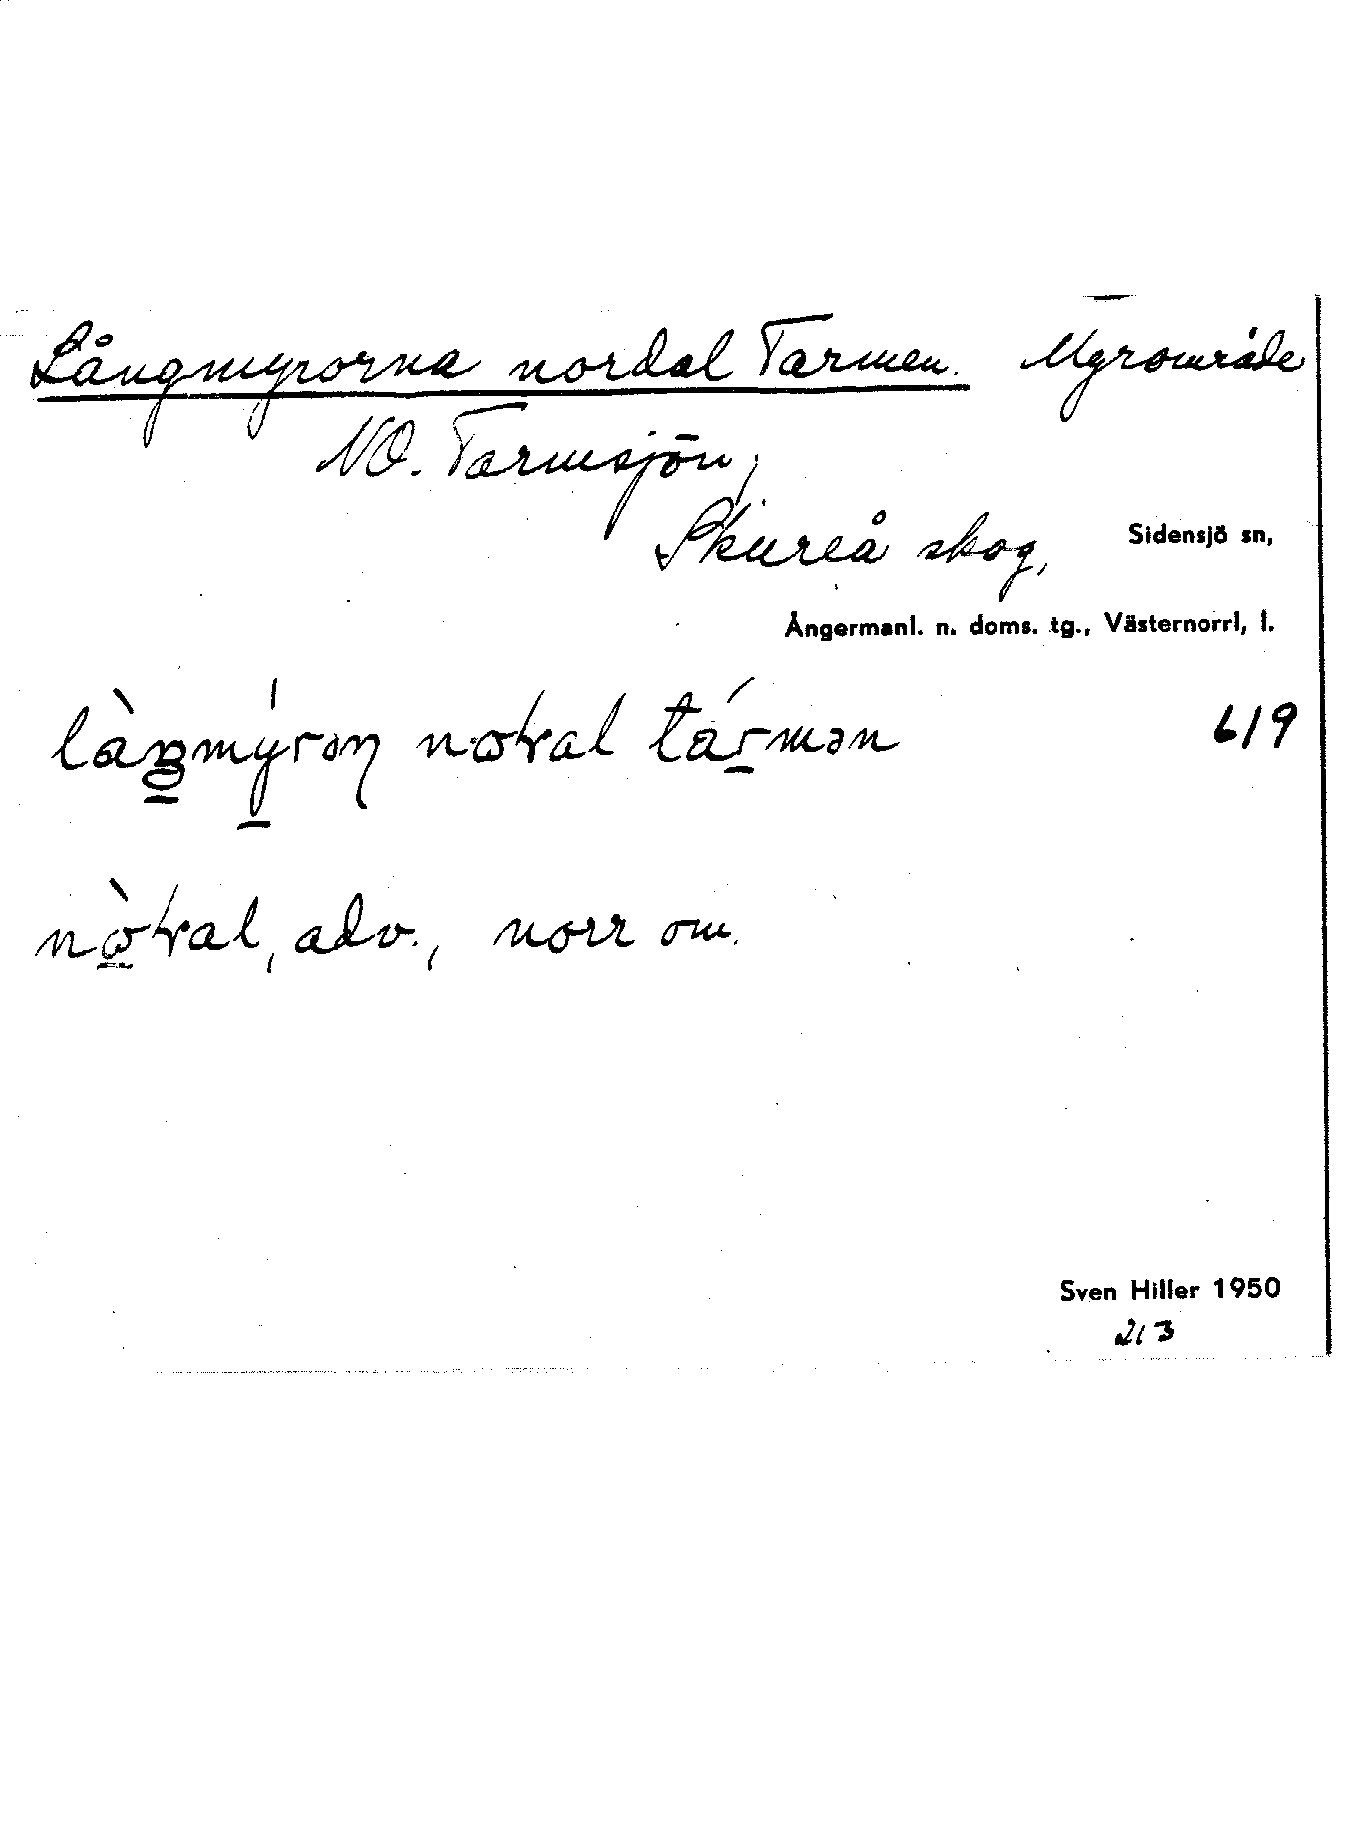 Långmyrorna nordal Tarmen. Myrområde
NO. Tarmsjön,
Skureå skog, Sidensjö sn,
Ångermanl. n. doms. tg., Västernorrl, l.
619
adv., norr om.
Sven Hiller 1950
213